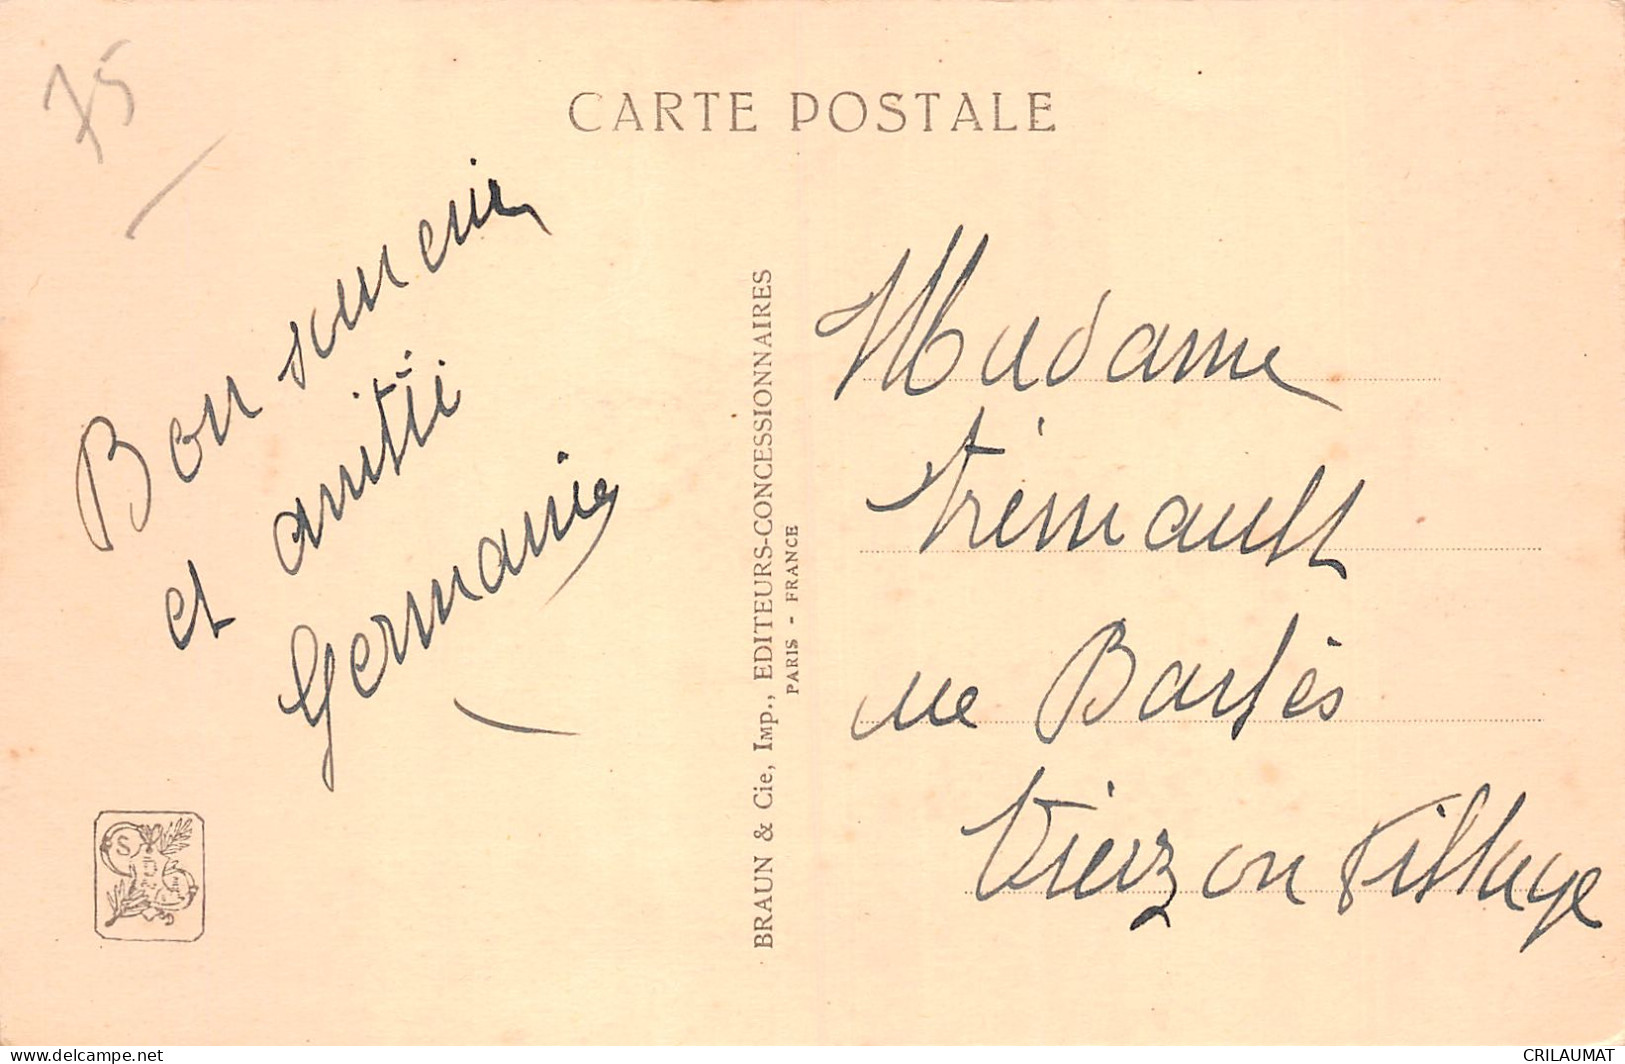 75
CARTE POSTALE
Bon souvenir
et amitié
Germaine
BRAUN & Cie, Imp., EDITEURS-CONCESSIONNAIRES
PARIS - FRANCE
Madame
Trémault
rue Barbès
Vierzon Village
delcampe.net
CRILAUMAT